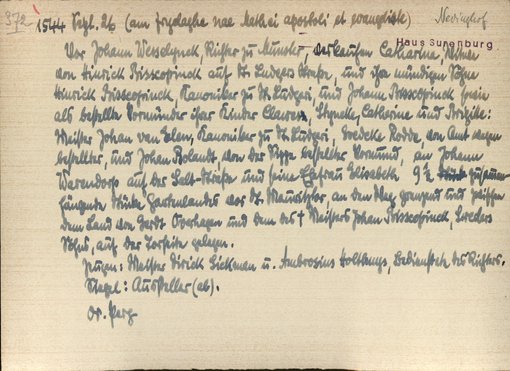 372 1544 Sept. 26 (am frydaghe nae Mathei apostoli et evangeliste) Nevinghof
Haus Surenburg
Vor Johann Wesselynck, Richter zu Münster, verkaufen Catharina, Witwe
von Hinrick Bisscopinck auf St. Ludgers Straße, und ihre mündigen Söhne
Hinrick Bisscopinck, Kanoniker zu St. Ludgeri und Johann Bisscopinck sowie
als bestellte Vormünder ihrer Kinder Clara, Styneke, Catharine und Brigitte:
Meister Johan van Elen, Kanoniker zu St. Ludgeri, Bodeke Rodde, von Amt wegen
bestellter, und Johan Rolandt, von der Sippe bestellter Vormund, an Johann
Warendorp auf der Salt-Straße und seine Ehefrau Elisabeth 9½ Stück zusammen-
hängende Stücke Gartenlandes vor St. Mauritztor, an den Weg grenzend und zwischen
dem Land von Gerdt Overhagen und dem des † Meisters Johan Bisscopinck,
Sohns, auf der Torseite gelegen.
Zeugen: Meister Dirick Sickman u. Ambrosius Holtkamp, Bedienstete des Richters.
Siegel: Aussteller (ab).
Or. Perg